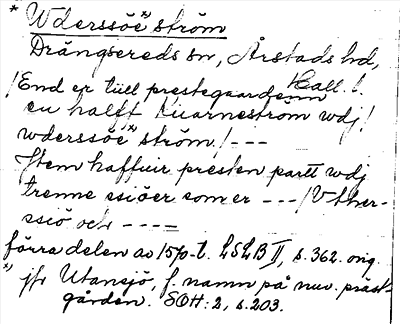 * Wderssöe *) ström
Drängsereds sn, Årstads hd,
Hall. l.
/End er tiill prestegaardenn
en halfft kuarnestrom wdj/
wderssöe *) ström /- - -
Jtem haffuir presten partt wdj
trenne ssiöer som er - - - /Vther-
ssiö och - - - -
förra delen av 15/p-t. LSLB II, s. 362. orig.
*) jfr Utansjö, f. namn på nuv. präst-
gården. SOH: 2, s. 203.